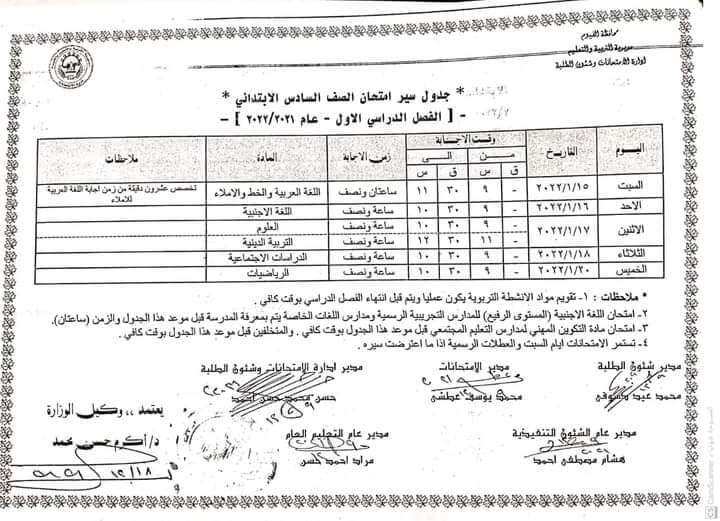 محافظة الفيوم
مديرية التربية والتعليم
ادارة الامتحانات وشئون الطلبة
* جدول سير امتحان الصف السادس الابتدائي *
- [ الفصل الدراسي الاول - عام ٢٠٢٢/٢٠٢١ ] -
اليوم التاريخ وقت الاجابة زمن الاجابة المادة ملاحظات
من الى
ق س ق س
السبت ٢٠٢٢/١/١٥ - ٩ ٣٠ ١١ ساعتان ونصف اللغة العربية والخط والاملاء تخصص عشرون دقيقة من زمن اجابة اللغة العربية للاملاء
الاحد ٢٠٢٢/١/١٦ - ٩ ٣٠ ١٠ ساعة ونصف اللغة الاجنبية
الاثنين ٢٠٢٢/١/١٧ - ٩ ٣٠ ١٠ ساعة ونصف العلوم
- ١١ ٣٠ ١٢ ساعة ونصف التربية الدينية
الثلاثاء ٢٠٢٢/١/١٨ - ٩ ٣٠ ١٠ ساعة ونصف الدراسات الاجتماعية
الخميس ٢٠٢٢/١/٢٠ - ٩ ٣٠ ١٠ ساعة ونصف الرياضيات
* ملاحظات : ١- تقويم مواد الانشطة التربوية يكون عمليا ويتم قبل انتهاء الفصل الدراسي بوقت كافي .
٢- امتحان اللغة الاجنبية (المستوى الرفيع) للمدارس التجريبية الرسمية ومدارس اللغات الخاصة يتم بمعرفة المدرسة قبل موعد هذا الجدول والزمن (ساعتان).
٣- امتحان مادة التكوين المهني لمدارس التعليم المجتمعي قبل موعد هذا الجدول بوقت كافي . والمتخلفين قبل موعد هذا الجدول بوقت كافي .
٤- تستمر الامتحانات ايام السبت والعطلات الرسمية اذا ما اعترضت سيره .
مدير شئون الطلبة مدير الامتحانات مدير ادارة الامتحانات وشئون الطلبة
محمد عيد دسوقي محمد يوسف عطشي حسن محمد حسن احمد
يعتمد ،، وكيل الوزارة
مدير عام الشئون التنفيذية مدير عام التعليم العام د/ أكرم حسن محمد
هشام مصطفى احمد مراد احمد حسن
CS CamScanner